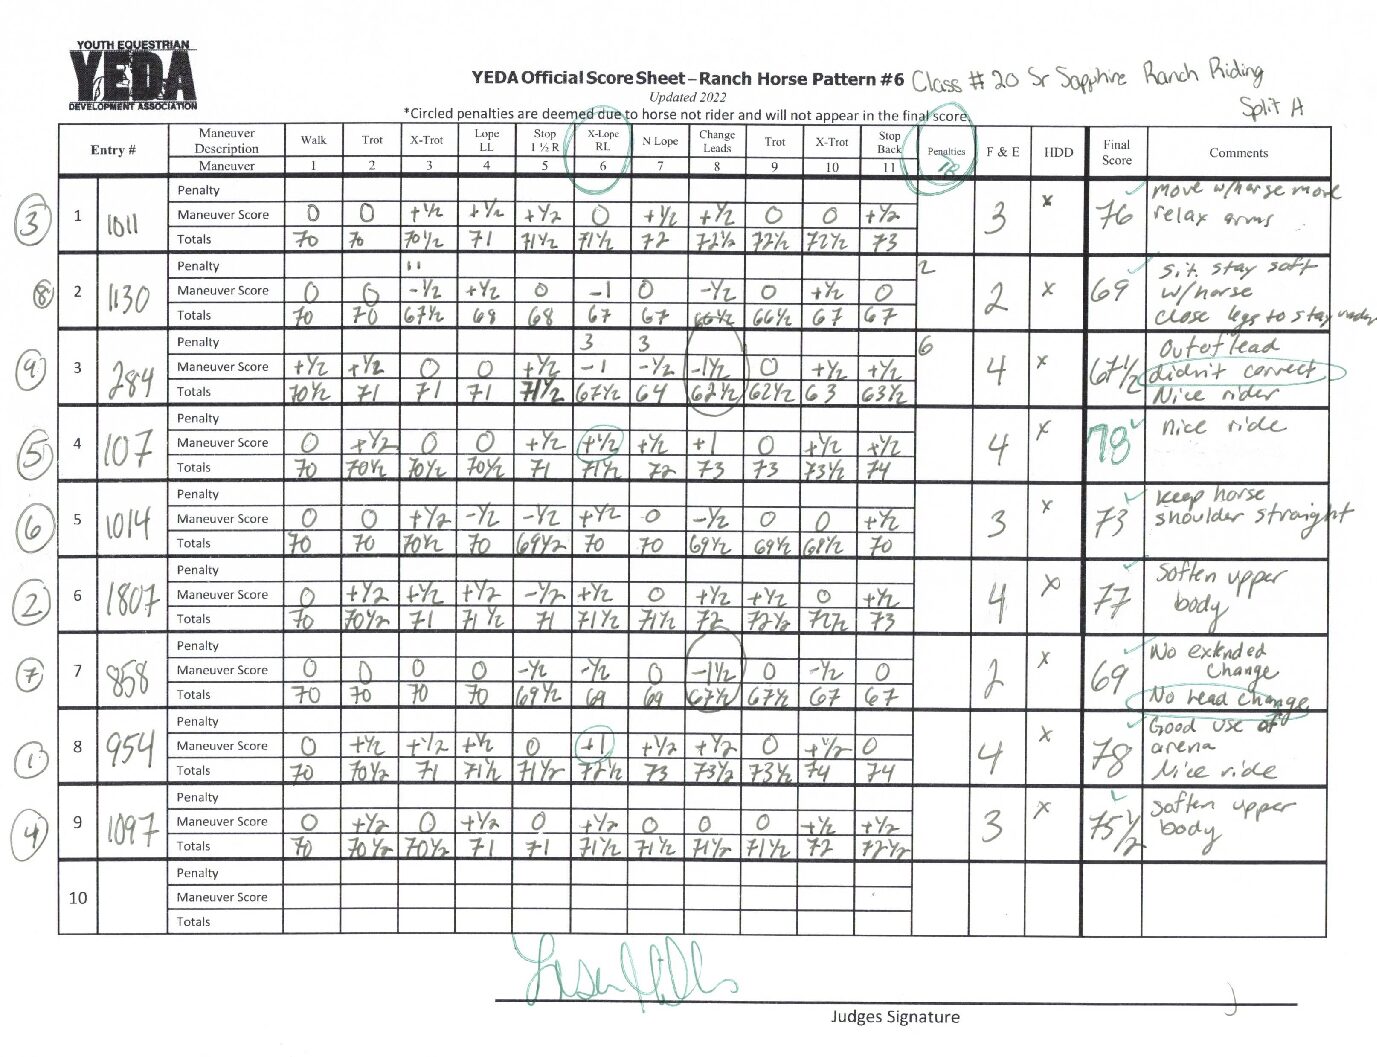 YOUTH EQUESTRIAN
YEDA
DEVELOPMENT ASSOCIATION
YEDA Official Score Sheet – Ranch Horse Pattern #6 Class #20 Sr Sapphire Ranch Riding
Updated 2022 Split A
*Circled penalties are deemed due to horse not rider and will not appear in the final score
Entry # Maneuver Description Walk Trot X-Trot Lope LL Stop 1 ½ R X-Lope RL N Lope Change Leads Trot X-Trot Stop Back Penalties F & E HDD Final Score Comments
Maneuver 1 2 3 4 5 6 7 8 9 10 11
Penalty move w/horse more
3 1 1011 Maneuver Score 0 0 +½ +½ +½ 0 +½ +½ 0 0 +½ 3 x 76 relax arms
Totals 70 70 70½ 71 71½ 71½ 72 72½ 72½ 72½ 73
Penalty ıı 2 sit. stay soft
8 2 1130 Maneuver Score 0 0 -½ +½ 0 -1 0 -½ 0 +½ 0 2 x 69 w/horse
Totals 70 70 67½ 68 68 67 67 66½ 66½ 67 67 close legs to stay under
Penalty 3 3 6 Out of lead
9 3 284 Maneuver Score +½ +½ 0 0 +½ -1 -½ -1½ 0 +½ +½ 4 x 67½ didn't correct
Totals 70½ 71 71 71 71½ 67½ 64 62½ 62½ 63 63½ Nice rider
Penalty nice ride
5 4 107 Maneuver Score 0 +½ 0 0 +½ +½ +½ +1 0 +½ +½ 4 x 78
Totals 70 70½ 70½ 70½ 71 71½ 72 73 73 73½ 74
Penalty keep horse
6 5 1014 Maneuver Score 0 0 +½ -½ -½ +½ 0 -½ 0 0 +½ 3 x 73 shoulder straight
Totals 70 70 70½ 70 69½ 70 70 69½ 69½ 69½ 70
Penalty soften upper
2 6 1807 Maneuver Score 0 +½ +½ +½ -½ +½ 0 +½ +½ 0 +½ 4 x 77 body
Totals 70 70½ 71 71½ 71 71½ 71½ 72 72½ 72½ 73
Penalty No extended
7 7 858 Maneuver Score 0 0 0 0 -½ -½ 0 -1½ 0 -½ 0 2 x 69 change
Totals 70 70 70 70 69½ 69 69 67½ 67½ 67 67 No lead change
Penalty Good use of
1 8 954 Maneuver Score 0 +½ +½ +½ 0 +1 +½ +½ 0 +½ 0 4 x 78 arena
Totals 70 70½ 71 71½ 71½ 72½ 73 73½ 73½ 74 74 Nice ride
Penalty soften upper
4 9 1097 Maneuver Score 0 +½ 0 +½ 0 +½ 0 0 0 +½ +½ 3 x 75½ body
Totals 70 70½ 70½ 71 71 71½ 71½ 71½ 71½ 72 72½
Penalty
10 Maneuver Score
Totals
Judges Signature